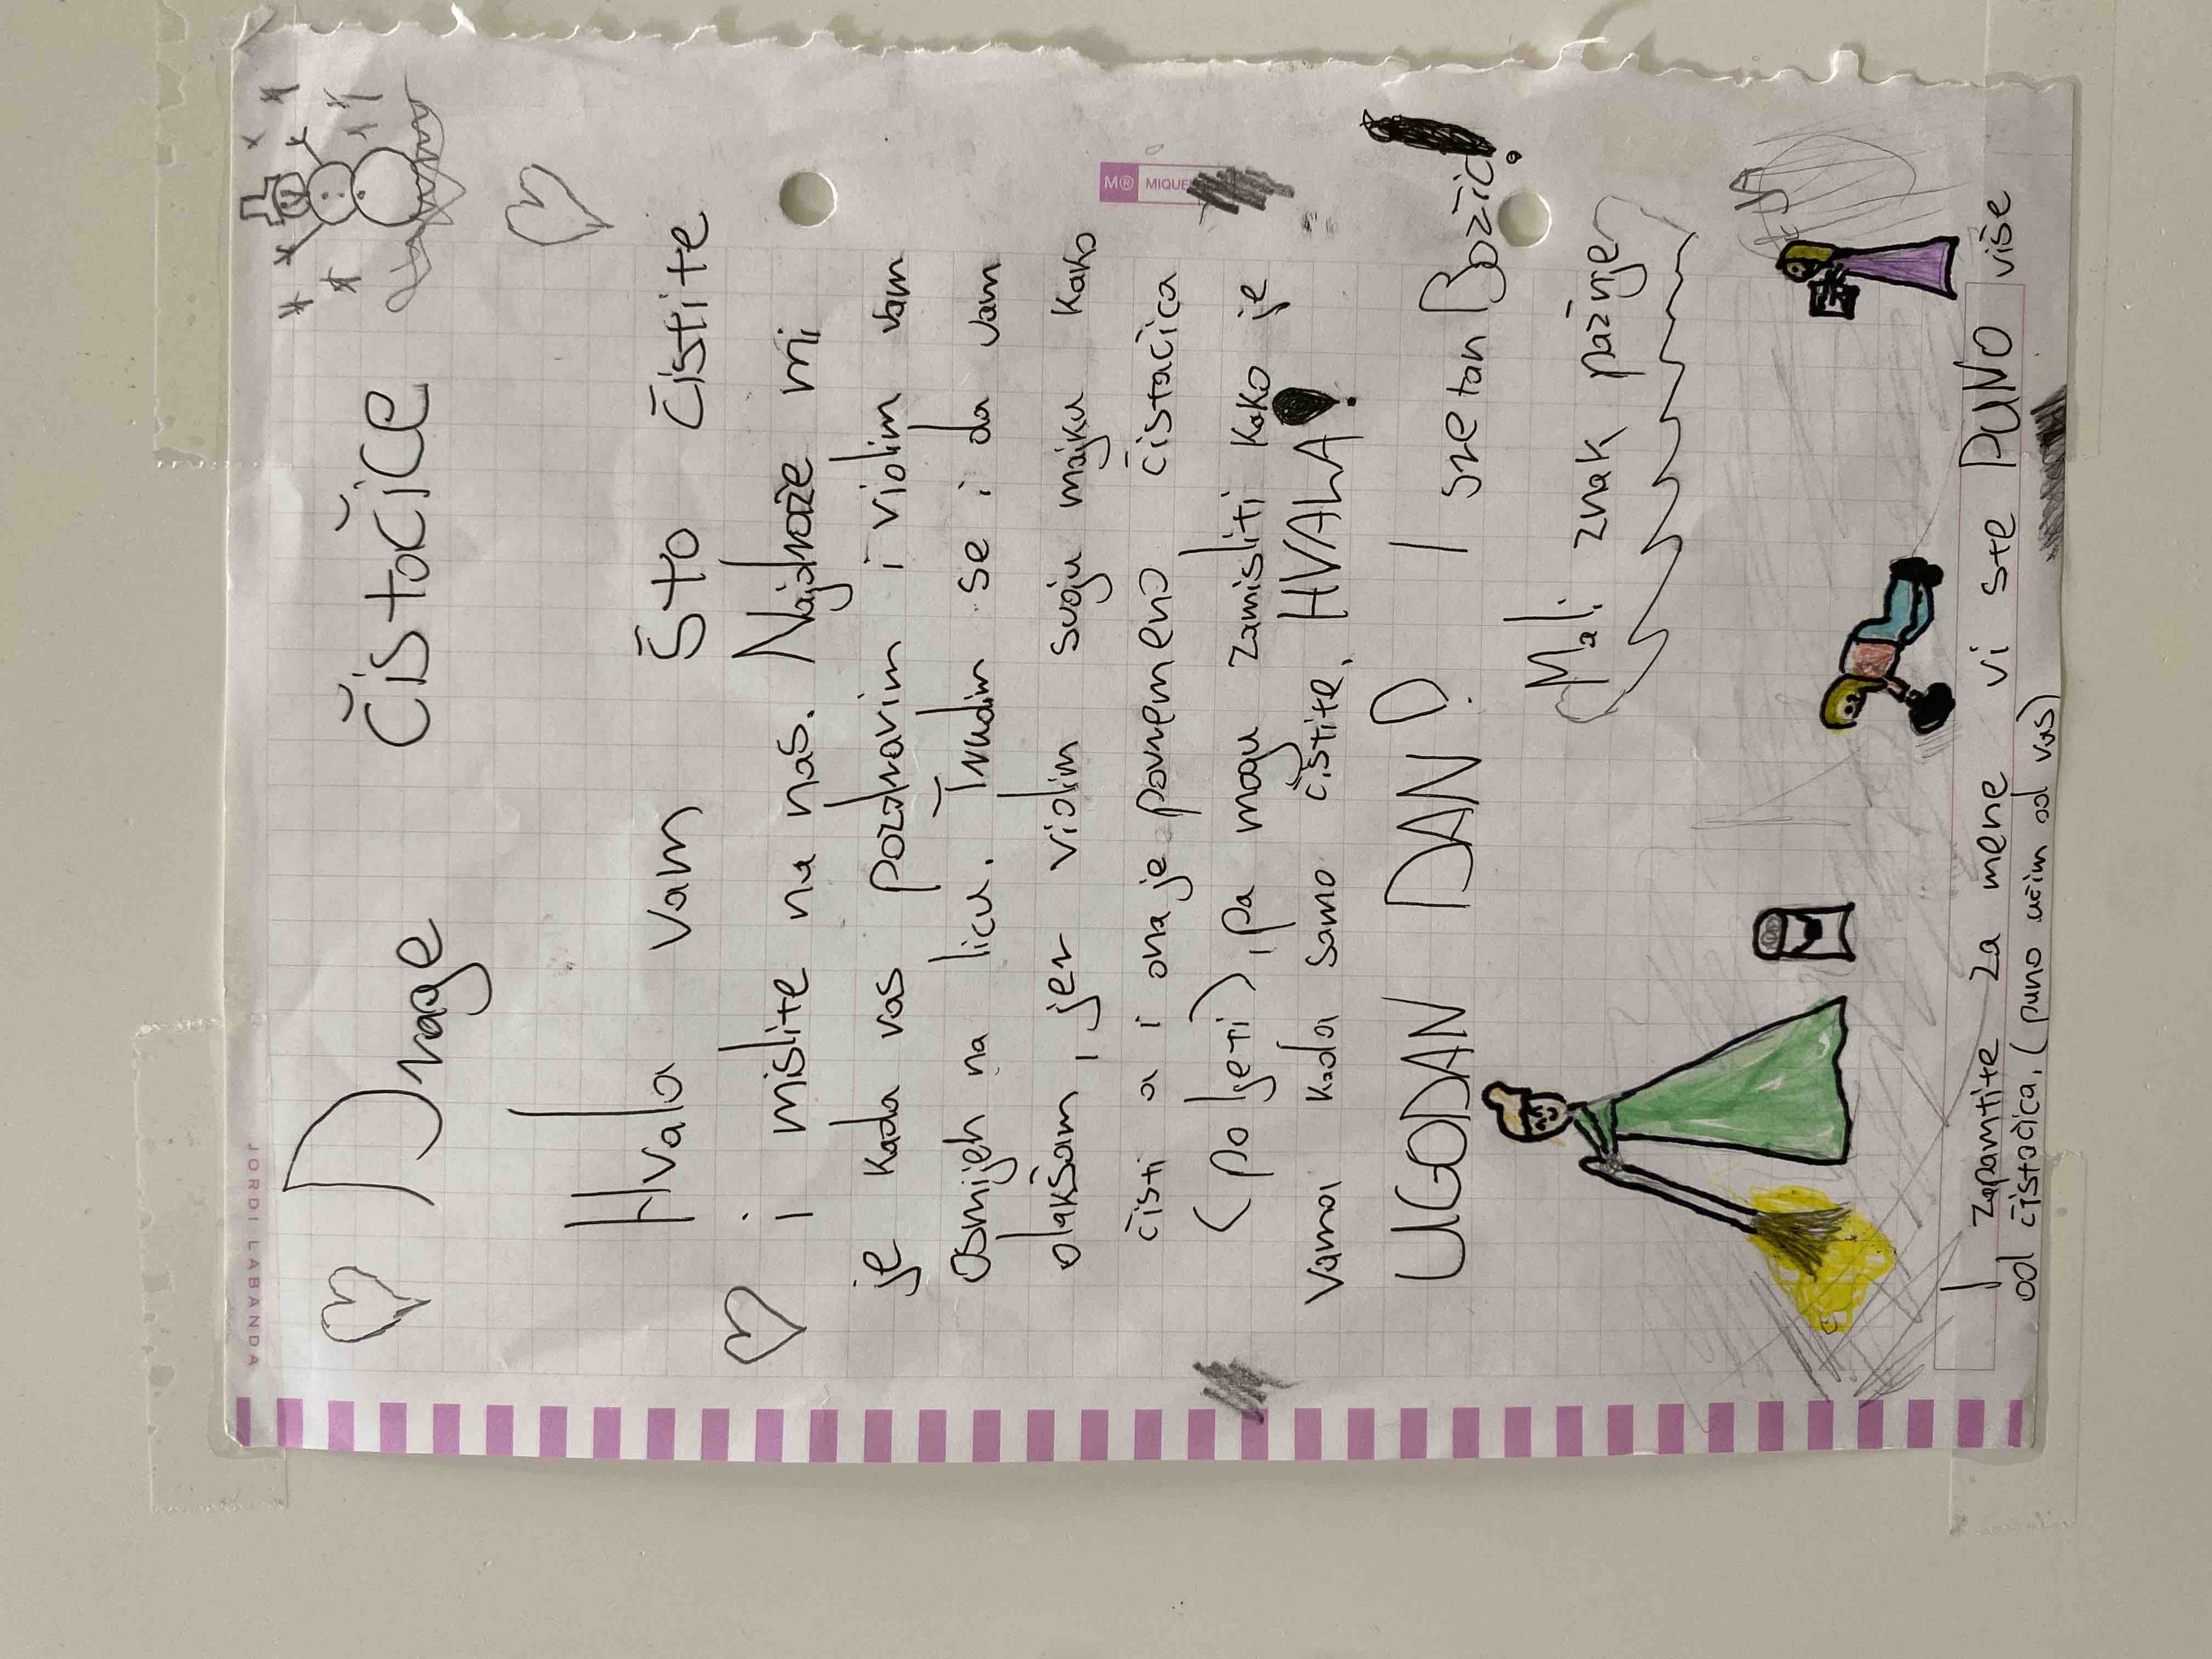 JORDI LABANDA
Drage čistačice
Hvala vam što čistite
i mislite na nas. Najdraže mi
je kada vas pozdravim i vidim vam
osmijeh na licu. Trudim se i da vam
olakšam, jer vidim svoju majku kako
čisti a i ona je povremeno čistačica
(po ljeti), pa mogu zamisliti kako je
vama kada samo čistite. HVALA!
UGODAN DAN? I sretan Božić!
Mali znak pažnje
I zapamtite za mene vi ste PUNO više
od čistačica, (puno učim od vas)
M® MIQUE